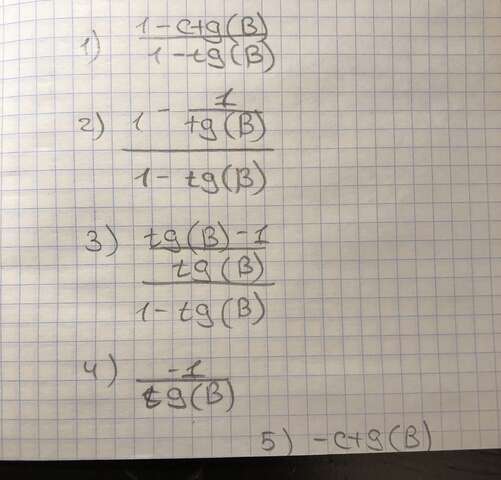 1) 1 - ctg(B)
1 - tg(B)
2) 1 - 1
tg(B)
1 - tg(B)
3) tg(B) - 1
tg(B)
1 - tg(B)
4) -1
tg(B)
5) -ctg(B)